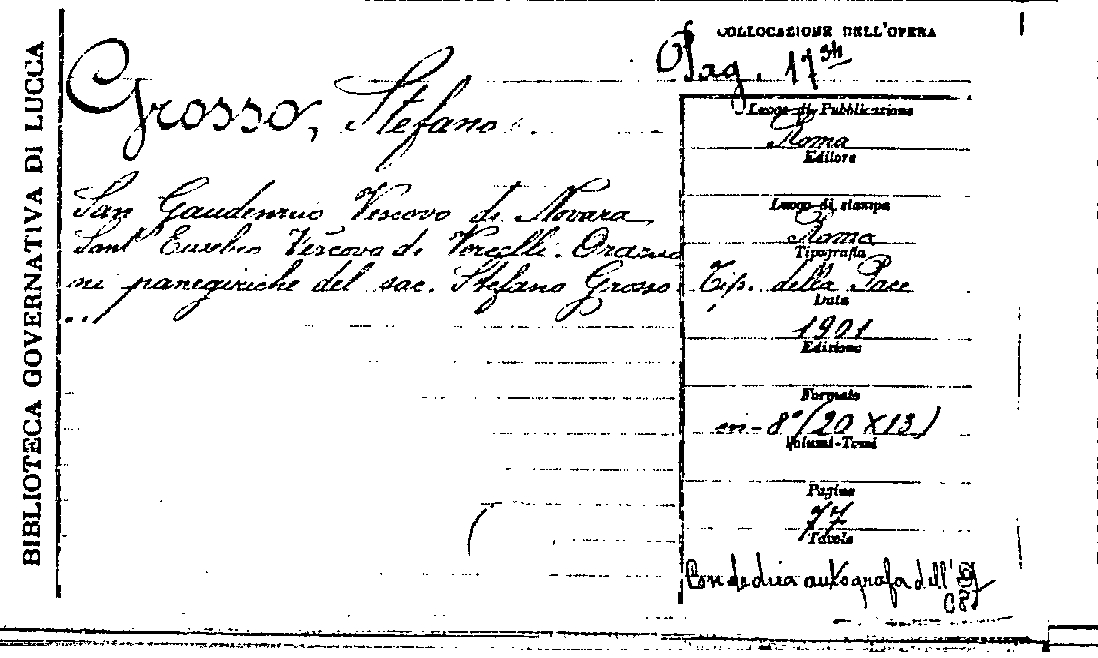 BIBLIOTECA GOVERNATIVA DI LUCCA
COLLOCAZIONE DELL'OPERA
Pag. 17
Grosso, Stefano
San Gaudenzio Vescovo di Novara
Sant' Eusebio Vescovo di Vercelli. Orazio
ni panegiriche del sac. Stefano Grosso
Luogo di Pubblicazione
Roma
Editore
Luogo di stampa
Roma
Tipografia
Tip. della Pace
Data
1901
Edizione
Formato
in-8° (20 X 13)
Volumi-Tomi
Pagine
77
Tavole
Con dedica autografa dell'